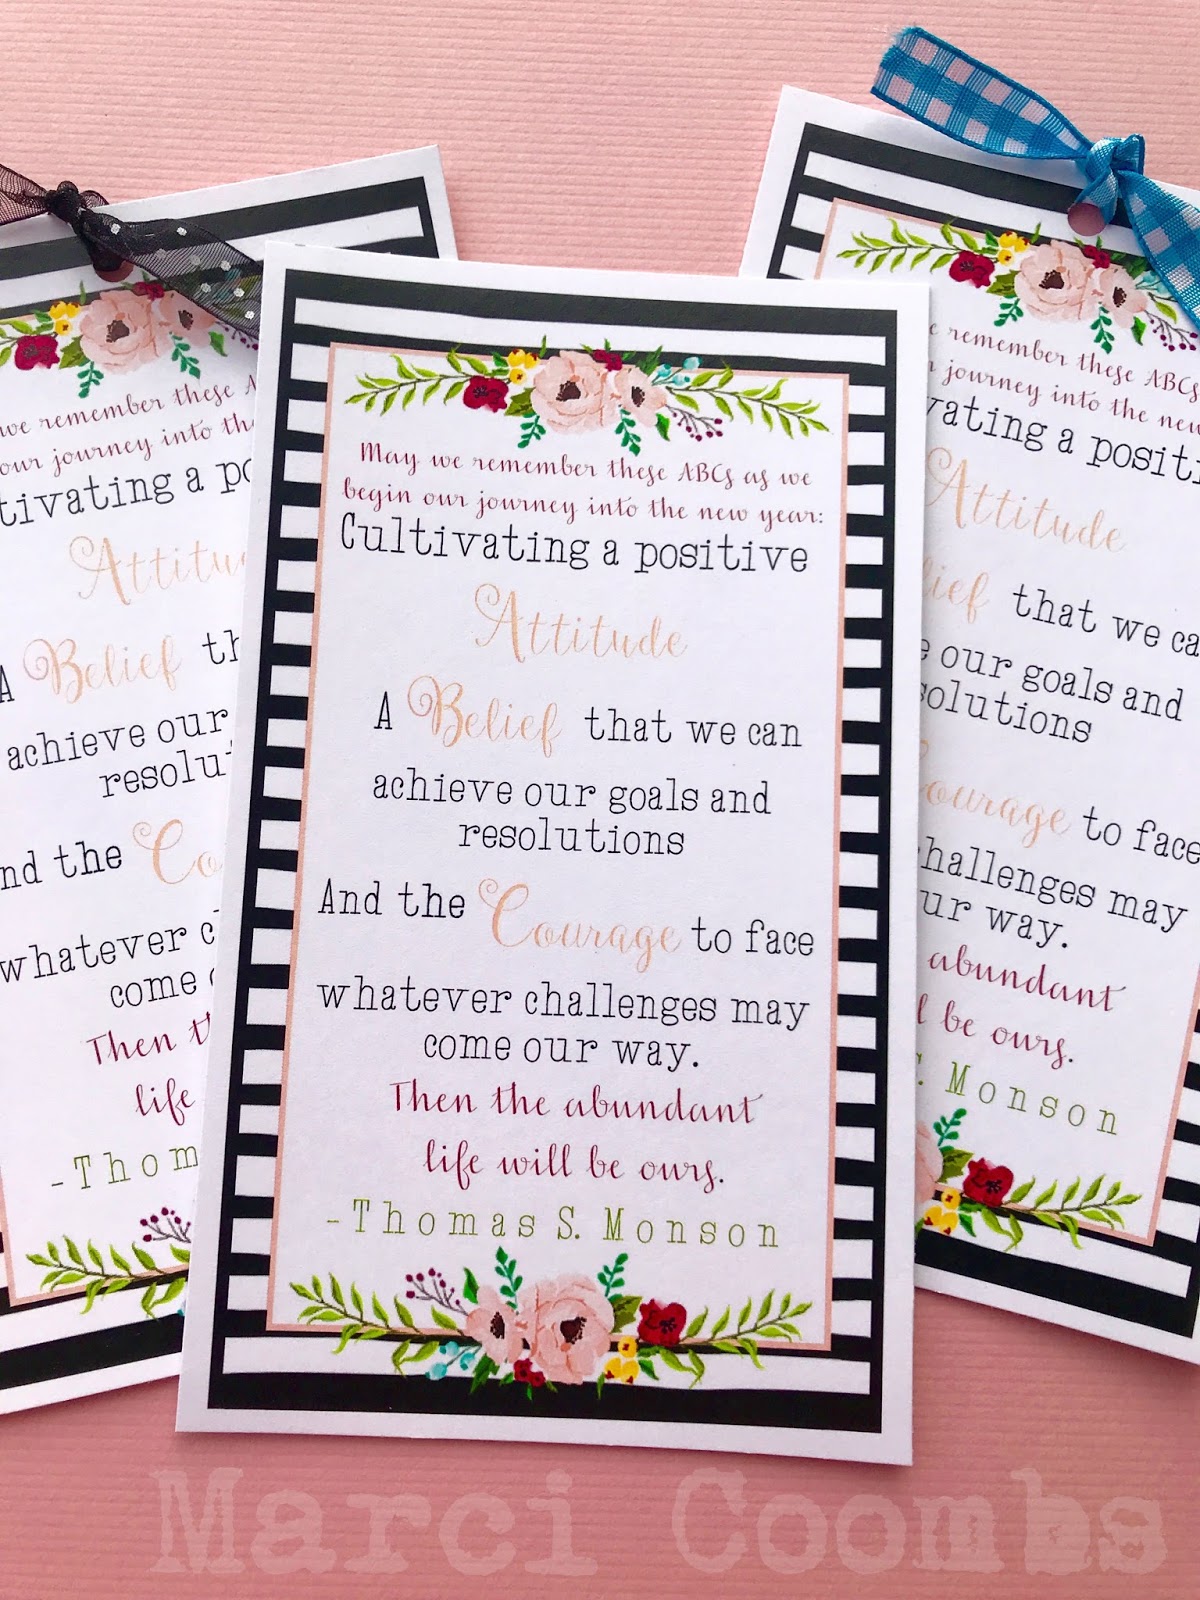 May we remember these ABCs as we
begin our journey into the new year:
Cultivating a positive
Attitude
A Belief that we can
achieve our goals and
resolutions
And the Courage to face
whatever challenges may
come our way.
Then the abundant
life will be ours.
-Thomas S. Monson
we remember these
our journey into
Attitude
A Belief
achieve our
the
whatever
come
Then
life
remember these ABCs
journey into the new
a
Attitude
that we
our goals and
Courage to face
may
way.
abundant
be ours.
Monson
Marci Coombs